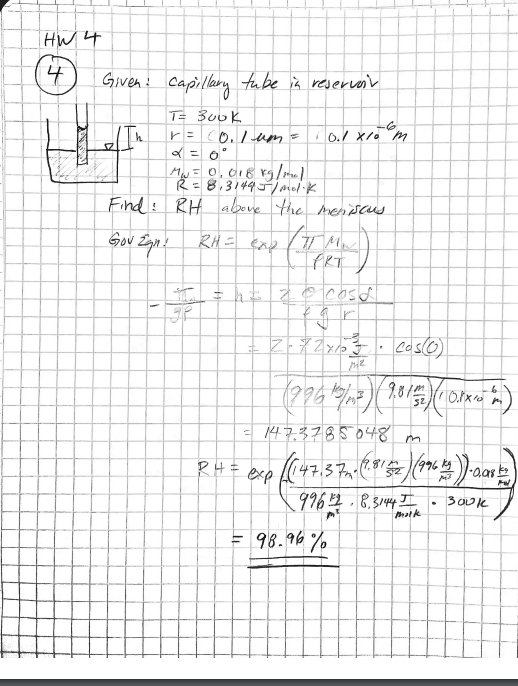 HW 4
4 Given: Capillary tube in reservoir
T= 300K
h
r = 0.1 um = 0.1 x10^-6 m
α = 0°
Mw = 0.018 kg/mol
R = 8.3144 J/mol·K
Find: RH above the meniscus
Gov Eqn: RH = exp (Π Mw / ρRT)
- Π / gρ = h = 2 σ cosα / ρ g r
= 2·72x10^-3 J/m² · cos(0) / (996 kg/m³)(9.81 m/s²)(0.1x10^-6 m)
= 147.3785048 m
RH = exp (-(147.37m·(9.81 m/s²)(996 kg/m³))·0.018 kg/mol / 996 kg/m³ · 8.3144 J/mol K · 300K)
= 98.96%